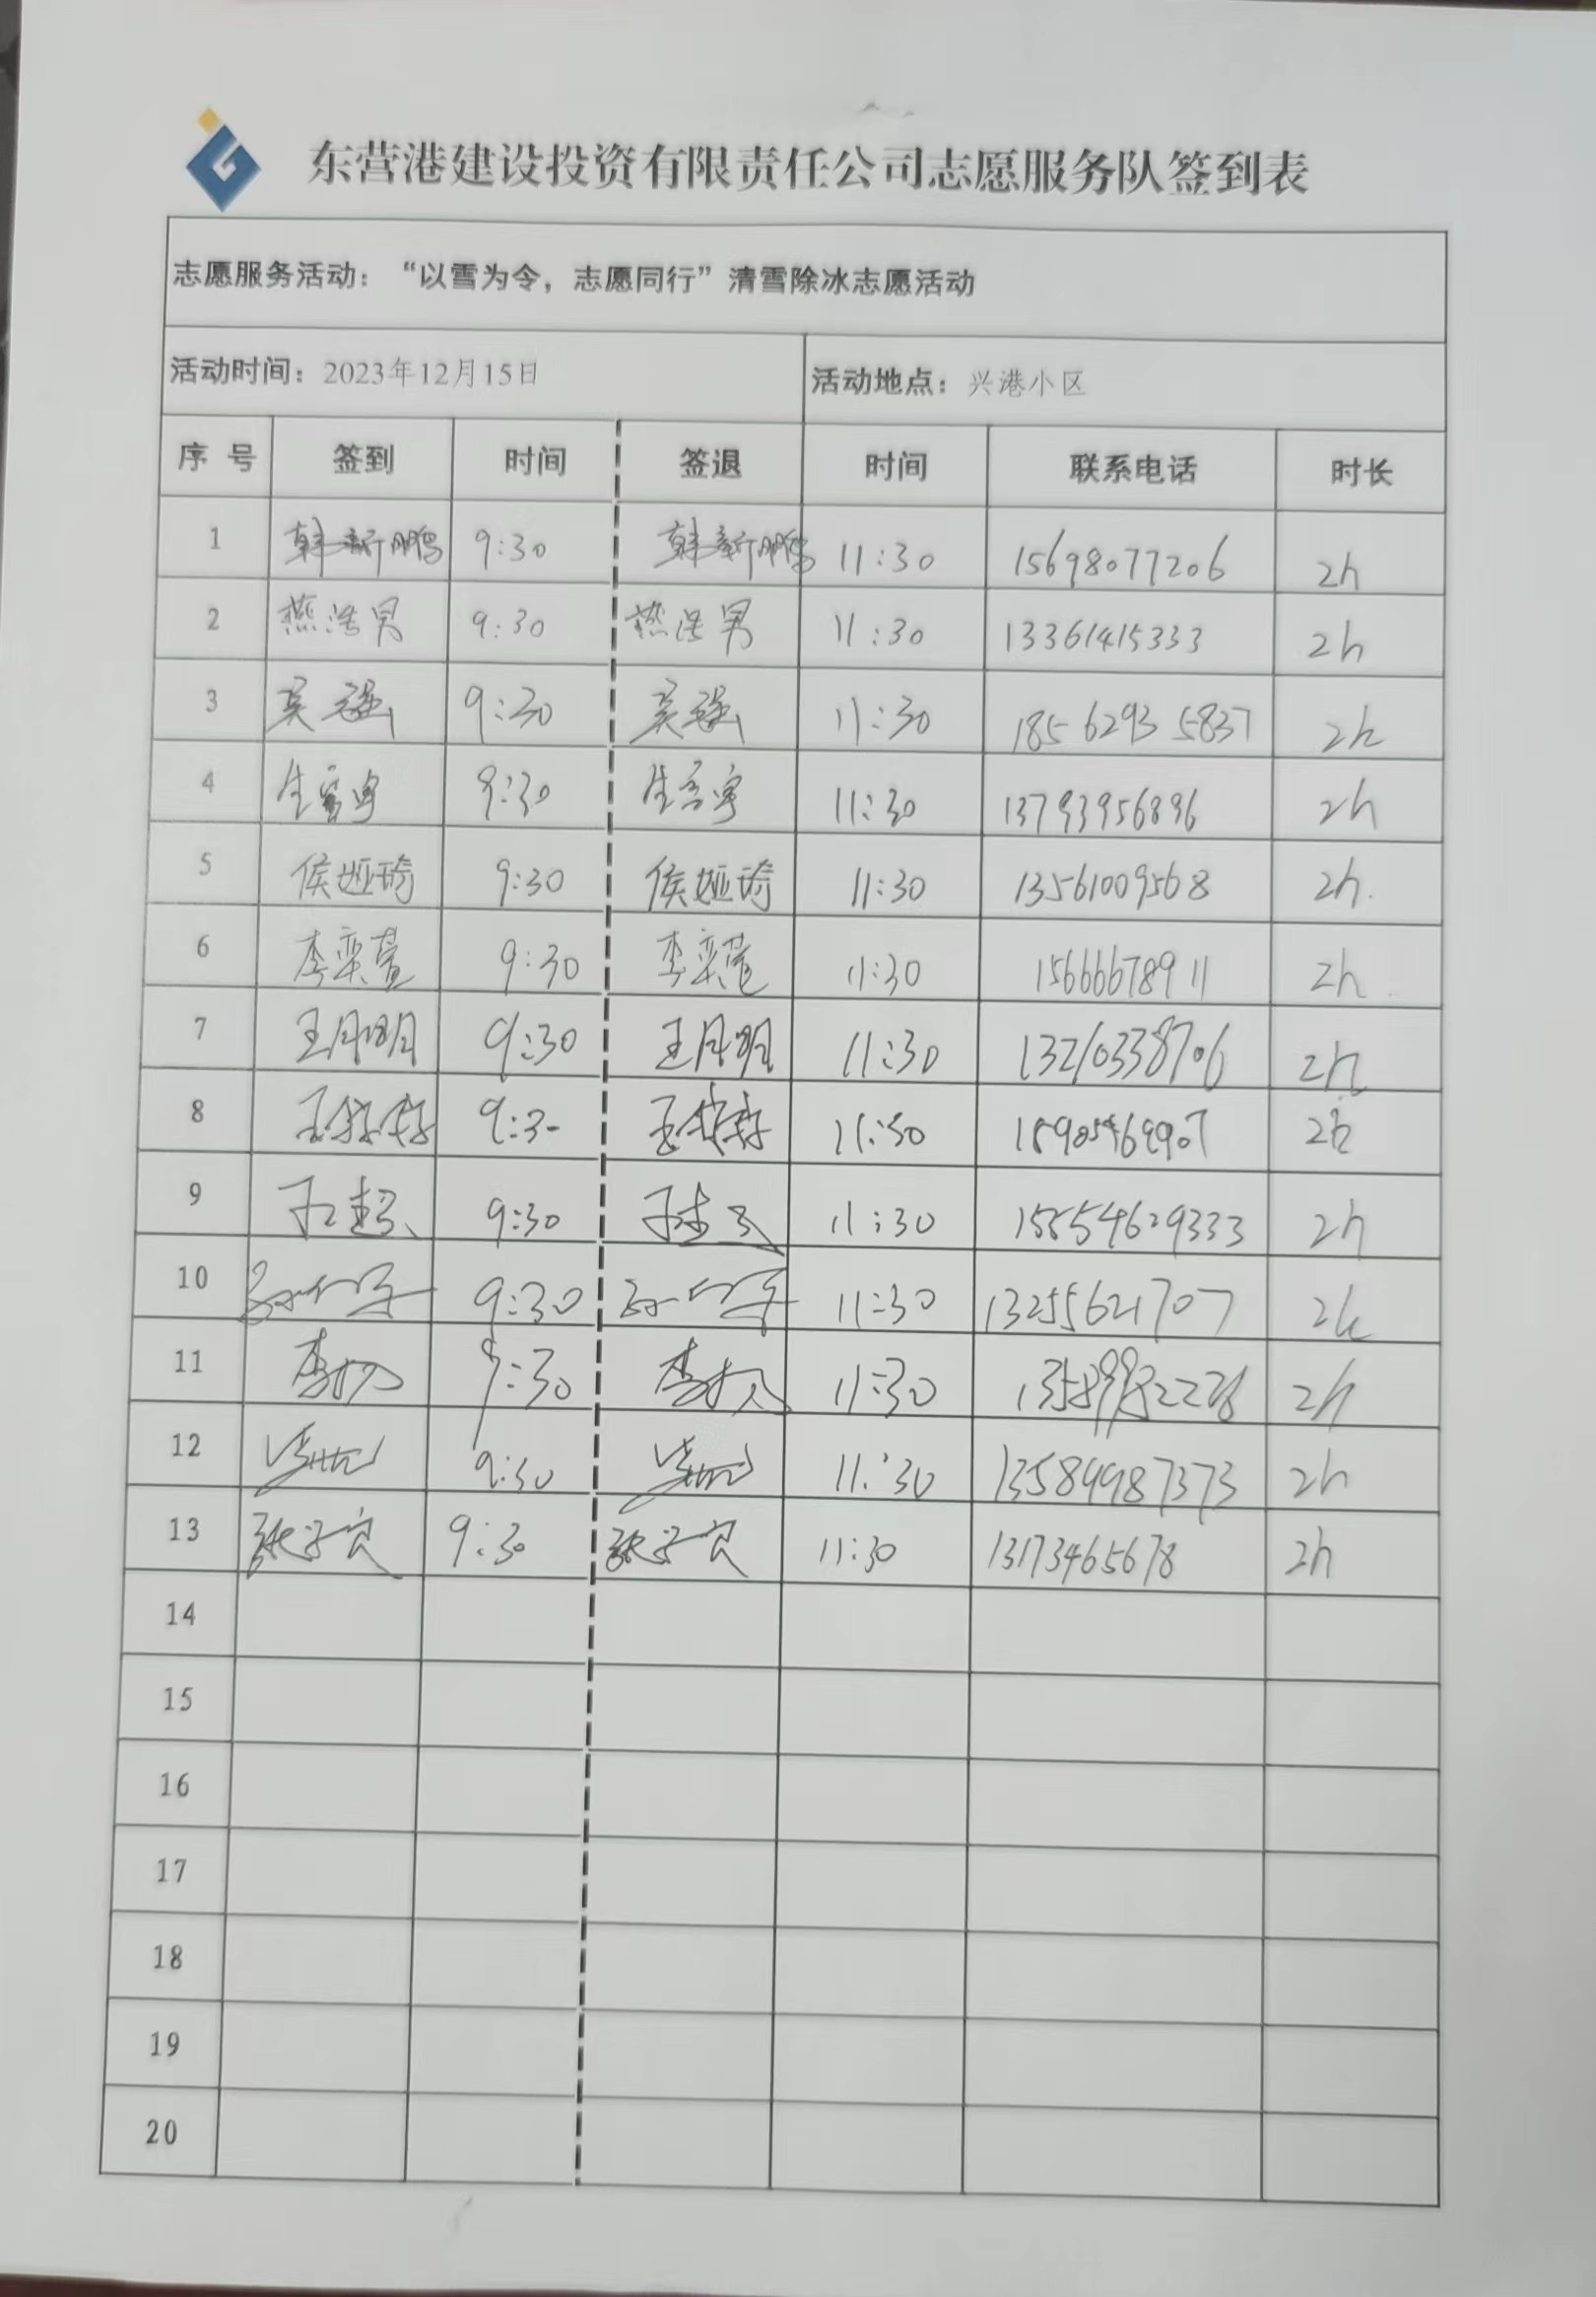 东营港建设投资有限责任公司志愿服务队签到表
志愿服务活动：“以雪为令，志愿同行”清雪除冰志愿活动
活动时间：2023年12月15日 活动地点：兴港小区
序 号 签到 时间 签退 时间 联系电话 时长
1 韩新鹏 9:30 韩新鹏 11:30 15698077206 2h
2 燕浩男 9:30 燕浩男 11:30 13361415333 2h
3 吴强 9:30 吴强 11:30 185 6293 5837 2h
4 9:30 11:30 13793956896 2h
5 侯娅琦 9:30 侯娅琦 11:30 13561009568 2h.
6 李奕萱 9:30 李奕萱 11:30 15666678911 2h.
7 王月明 9:30 王月明 11:30 13210338706 2h
8 9:30 11:30 2h
9 9:30 11:30 15554629333 2h
10 9:30 11:30 13255621707 2h
11 9:30 11:30 2h
12 9:30 11:30 13589987373 2h
13 9:30 11:30 13173465678 2h
14
15
16
17
18
19
20